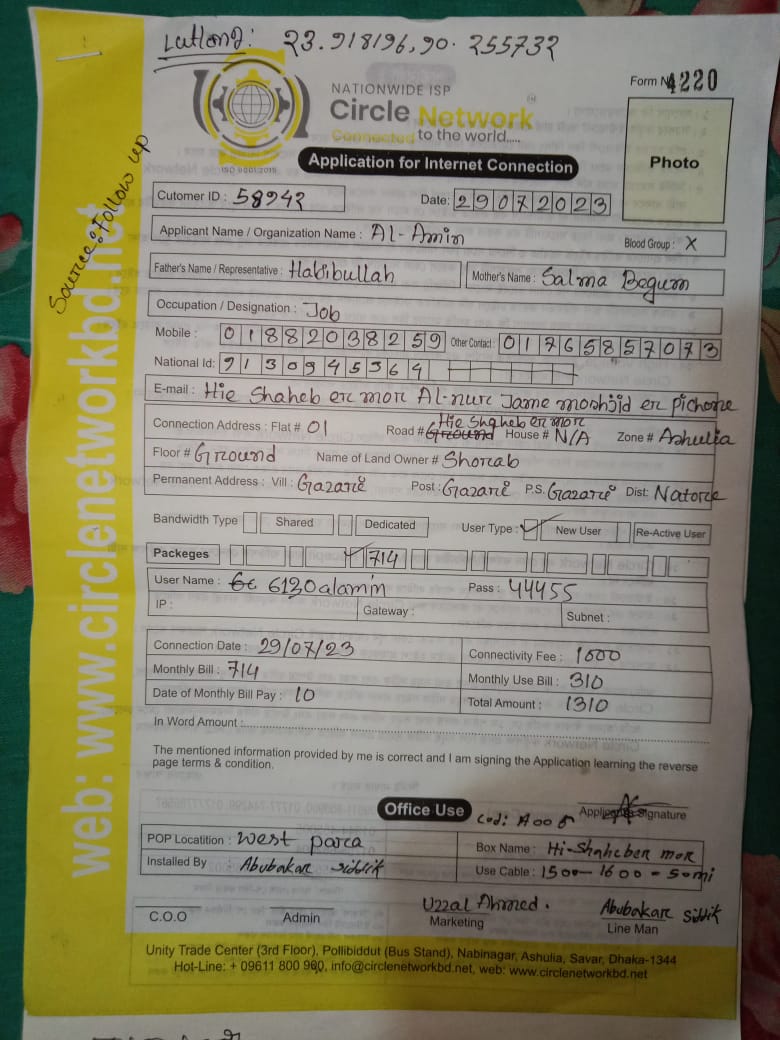 Latlong: 23.918196,90.255732
NATIONWIDE ISP
Circle Network
Connected to the world.....
ISO 9001:2015
Form No 4220
Photo
Application for Internet Connection
Source: Follow up
web: www.circlenetworkbd.net
Cutomer ID : 58942
Date: 29072023
Applicant Name / Organization Name : Al-Amin
Blood Group : X
Father's Name / Representative : Habibullah
Mother's Name : Salma Begum
Occupation / Designation : Job
Mobile : 01882038259 Other Contact : 01765857073
National Id: 9130945364
E-mail : Hie Shaheb er mor Al-nur Jame moshjid er pichone
Connection Address : Flat # 01 Road # Ground Hie Shaheb er mor House # N/A Zone # Ashulia
Floor # Ground Name of Land Owner # Shorab
Permanent Address : Vill : Gazari Post : Gazari P.S. Gazari Dist: Natore
Bandwidth Type Shared Dedicated User Type : ✓ New User Re-Active User
Packeges ✓ 714
User Name : 6120alamin Pass : 44455
IP : Gateway : Subnet :
Connection Date : 29/07/23 Connectivity Fee : 1000
Monthly Bill : 714 Monthly Use Bill : 310
Date of Monthly Bill Pay : 10 Total Amount : 1310
In Word Amount :
The mentioned information provided by me is correct and I am signing the Application learning the reverse
page terms & condition.
Applicant Signature
Office Use
POP Locatition : west parca Box Name : Hi-Shaheber mor
Installed By : Abubakar siddik Use Cable : 1500-1600 = 50mi
Uzzal Ahmed. Abubakar siddik
C.O.O Admin Marketing Line Man
Unity Trade Center (3rd Floor), Pollibiddut (Bus Stand), Nabinagar, Ashulia, Savar, Dhaka-1344
Hot-Line: + 09611 800 900, info@circlenetworkbd.net, web: www.circlenetworkbd.net